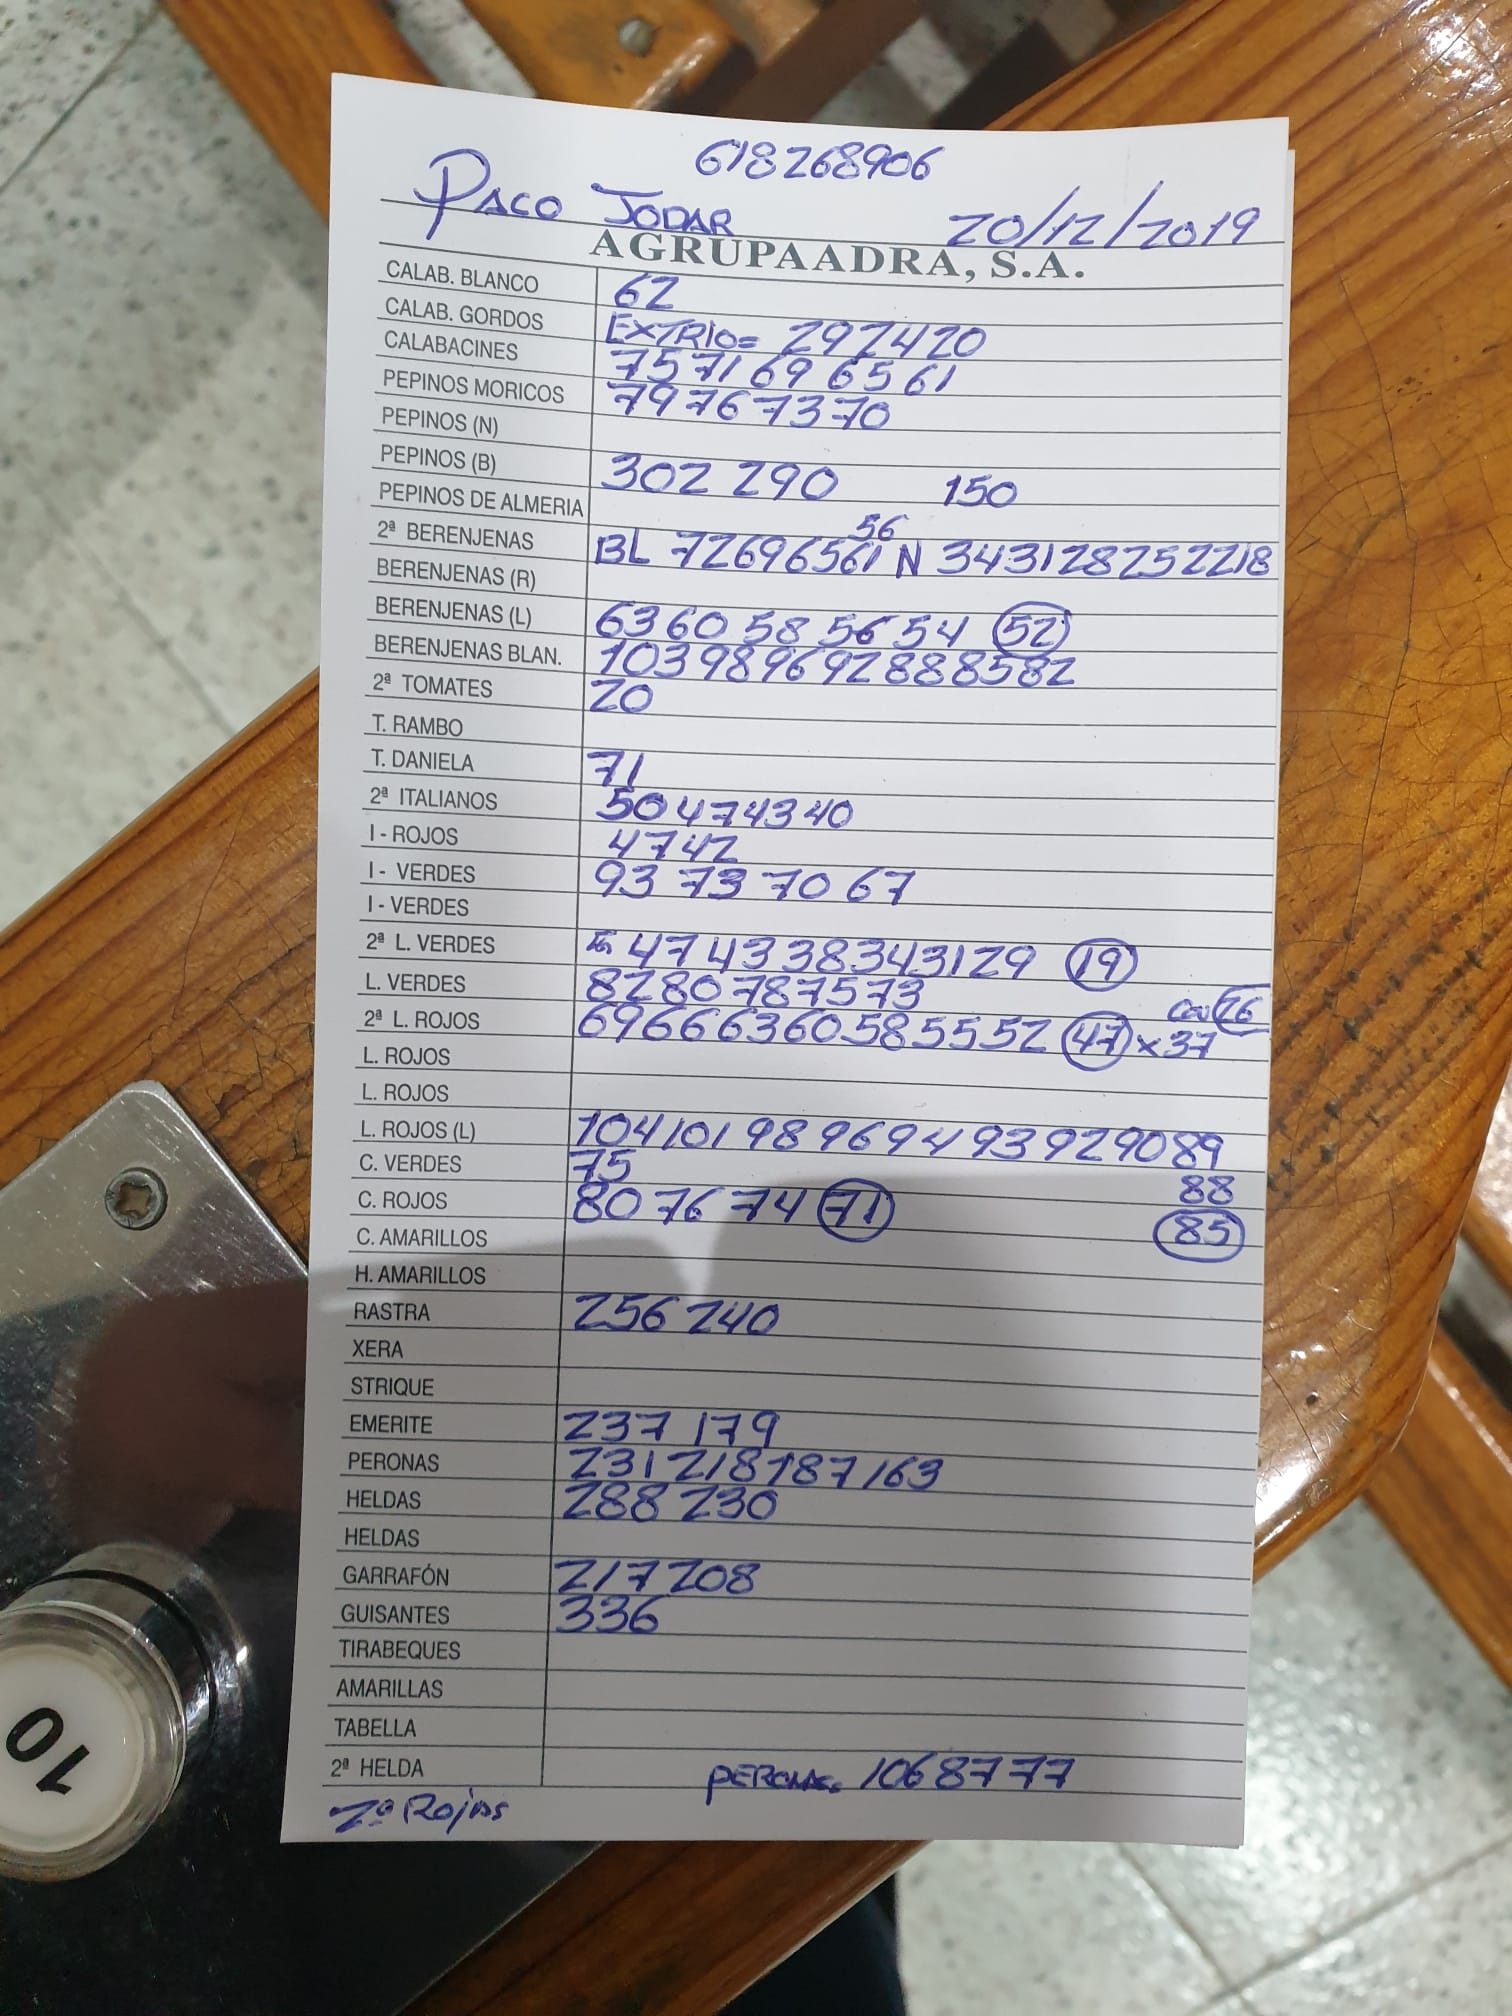 618268906
PACO JODAR 20/12/2019
AGRUPAADRA, S.A.
CALAB. BLANCO 62
CALAB. GORDOS EXTRIO= 292420
CALABACINES 75 71 69 65 61
PEPINOS MORICOS 79 76 73 70
PEPINOS (N)
PEPINOS (B) 302 290 150
PEPINOS DE ALMERIA
56
2ª BERENJENAS BL 72696561 N 343128252218
BERENJENAS (R)
BERENJENAS (L) 63 60 58 56 54 52
BERENJENAS BLAN. 103989692888582
2ª TOMATES 20
T. RAMBO
T. DANIELA 71
2ª ITALIANOS 50 474340
I - ROJOS 4742
I - VERDES 93 73 70 67
I - VERDES
2ª L. VERDES 47 4338343129 19
L. VERDES 8280787573 26
2ª L. ROJOS 69666360585552 47 x37
L. ROJOS
L. ROJOS
L. ROJOS (L) 104101 98 9694 93929089
C. VERDES 75 88
C. ROJOS 80 76 74 71 85
C. AMARILLOS
H. AMARILLOS
RASTRA 256 240
XERA
STRIQUE
EMERITE 237 179
PERONAS 231218187163
HELDAS 288 230
HELDAS
GARRAFÓN 217 208
GUISANTES 336
TIRABEQUES
AMARILLAS
TABELLA
2ª HELDA 1068777
2ª Rojas